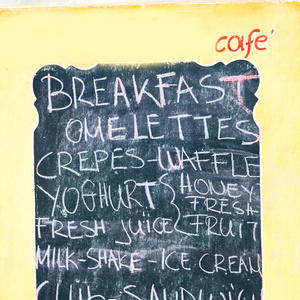 café
BREAKFAST
OMELETTES
CREPES-WAFFLE
YOGHURT { HONEY
FRESH
FRESH juice { FRUIT
MILK-SHAKE-ICE CREAM
CLUB-SANDWICH